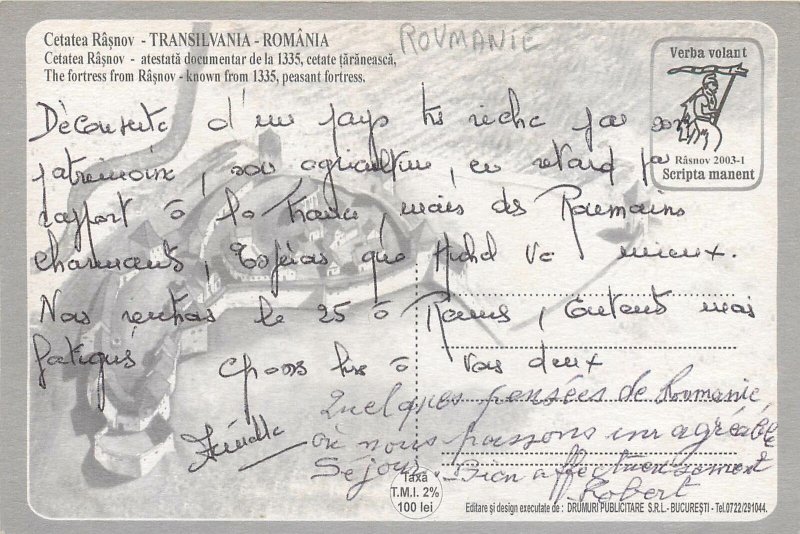 Cetatea Râșnov - TRANSILVANIA - ROMÂNIA
Cetatea Râșnov - atestată documentar de la 1335, cetate țărănească,
The fortress from Râșnov - known from 1335, peasant fortress.
ROUMANIE
Verba volant
Râsnov 2003-1
Scripta manent
Découverte d'un pays très riche par son
patrimoine, son agriculture, en retard par
rapport à la France, mais des Roumains
charmants, Espérons que Michel va mieux.
Nous rentrons le 25 à Reims, contents mais
fatigués
à vous deux
Quelques pensées de Roumanie
où nous passons un agréable
Séjour. Bien affectueusement
Robert
Taxa
T.M.I. 2%
100 lei
Editare și design executate de: DRUMURI PUBLICITARE S.R.L.- BUCUREȘTI - Tel.0722/291044.